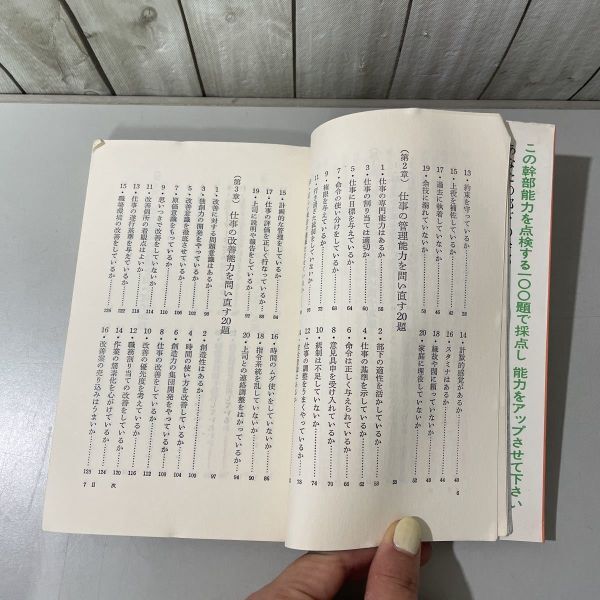 この幹部能力を点検する一〇〇題で採点し 能力をアップさせて下さい
13・約束を守っているか
14・計数的感覚があるか
15・上役を補佐しているか
16・スタミナはあるか
17・過去に執着していないか
18・縁故や閥に頼っていないか
19・余技に溺れていないか
20・家庭に埋没していないか
〈第2章〉 仕事の管理能力を問い直す20題
1・仕事の専門能力はあるか
2・部下の適性を活かしているか
3・仕事の割り当ては適切か
4・仕事の基準を示しているか
5・仕事に目標を与えているか
6・命令は正しく与えられているか
7・命令の使い分けをしているか
8・意見具申を受け入れているか
9・権限を与えているか
10・統制は不足していないか
11・行き過ぎた統制をしていないか
12・仕事の調整をうまくやっているか
15・計画的な管理をしているか
16・時間のムダ使いをしていないか
17・仕事の評価を正しく行なっているか
18・指令系統を乱していないか
19・上司に説明や報告をしているか
20・上司との連絡調整をはかっているか
〈第3章〉 仕事の改善能力を問い直す20題
1・改善に対する問題意識はあるか
2・創造性はあるか
3・独創力の開発をやっているか
4・時間の使い方を改善しているか
5・改善意識を徹底させているか
6・創造力の集団開発をやっているか
7・原価意識をもっているか
8・仕事の改善をしているか
9・思いつきで改善をしていないか
10・改善の優先度を考えているか
11・改善個所の着眼点はよいか
12・職務割り当ての改善をしているか
13・仕事の遂行基準を与えているか
14・作業の簡素化を心がけているか
15・職場環境の改善をしているか
16・改善案の売り込みはうまいか
7 目 次